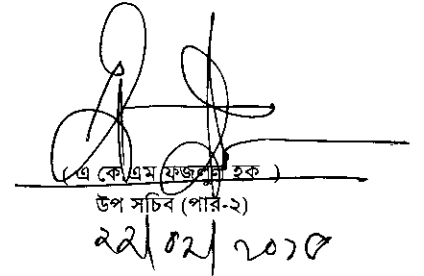 ( এ কে এম ফজলুল হক )
উপ সচিব (পার-২)
২২/০২/২০১৫